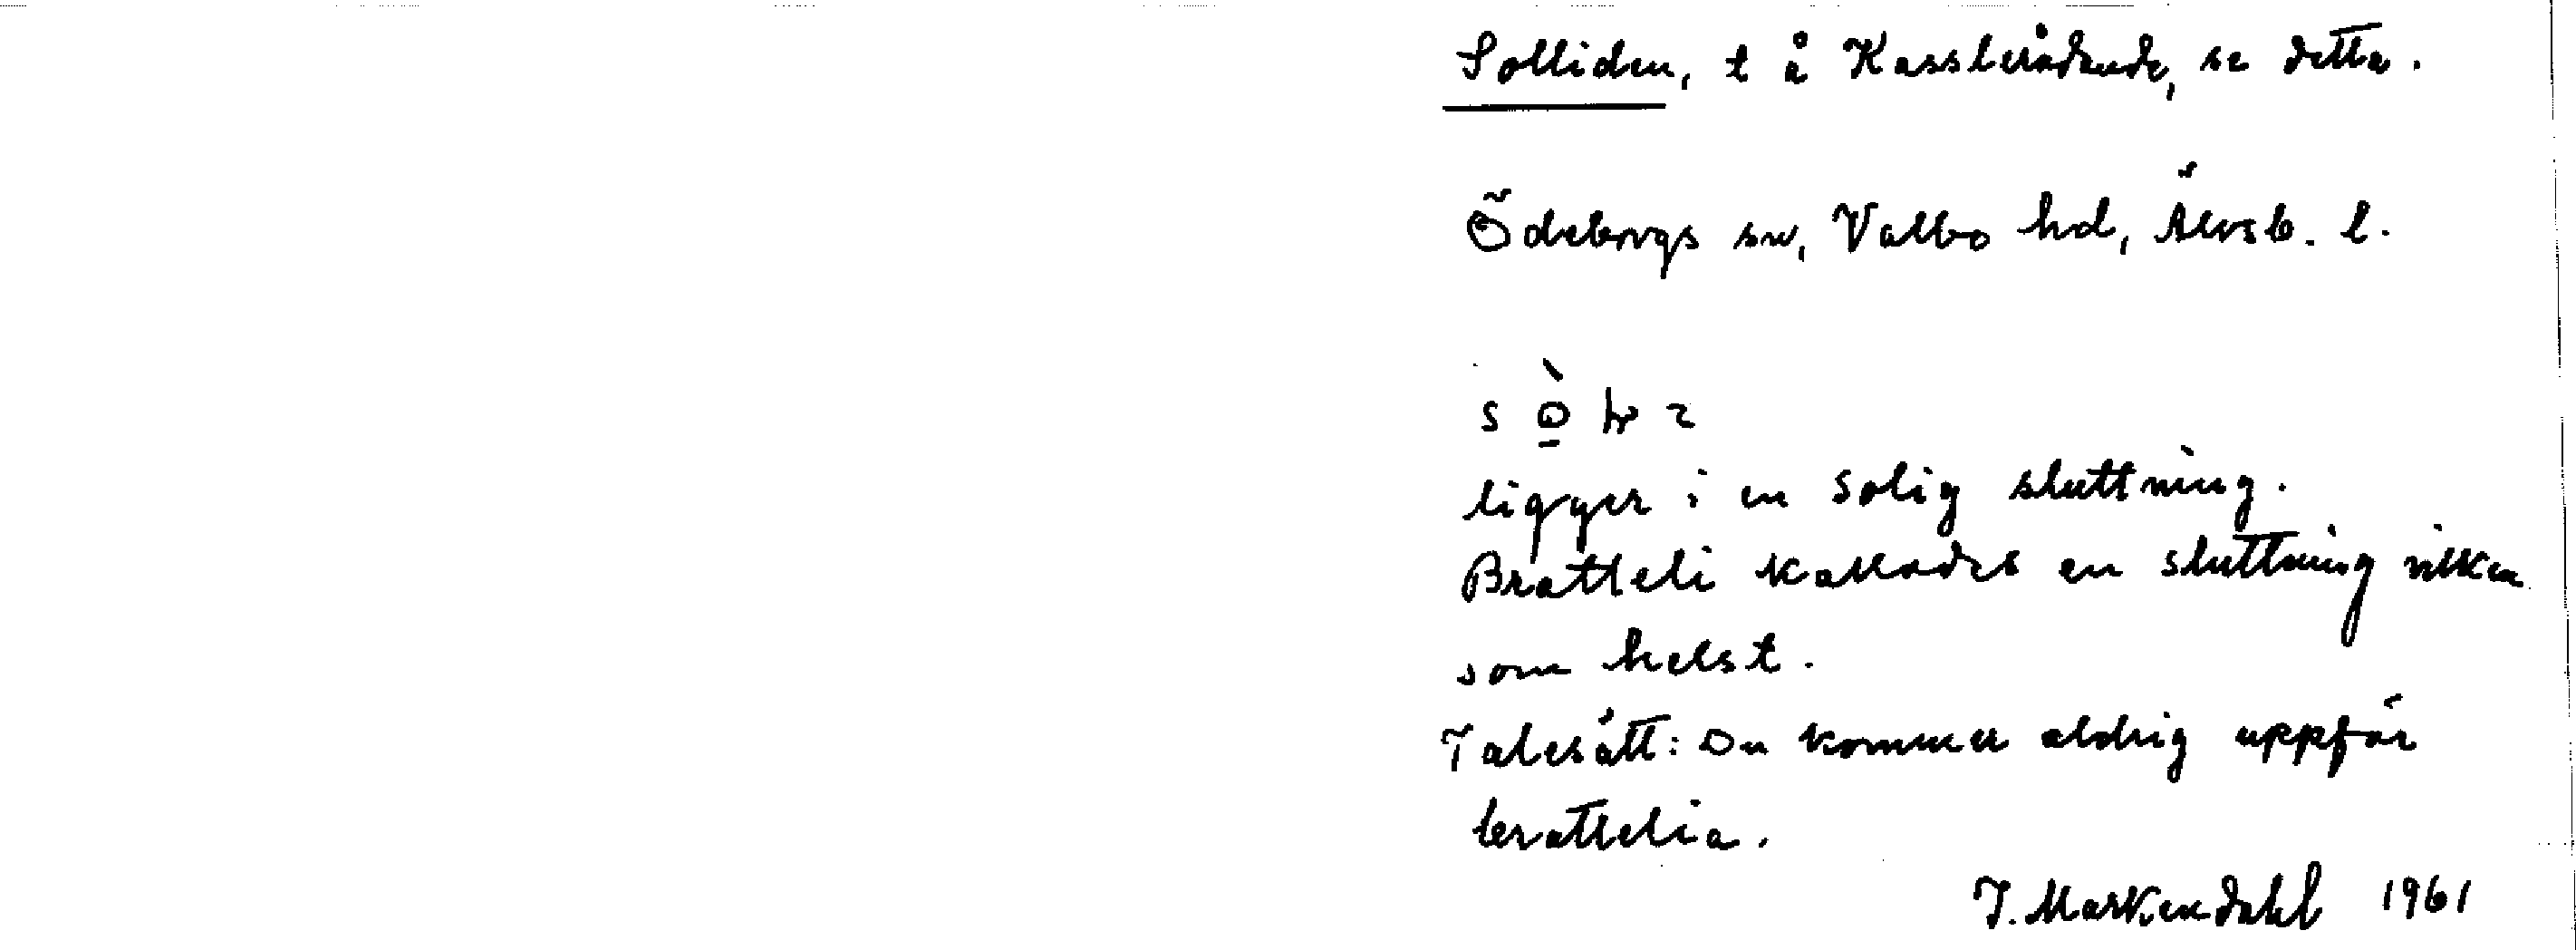 Solliden, t å Kassleråkude, se detta.
Ödeborgs sn, Valbo hd, Älvsb. l.
ligger i en solig sluttning.
Bratteli kallades en sluttning vilken
som helst.
Talesätt: Du kommer aldrig uppför
brattelia.
J. Markendahl 1961